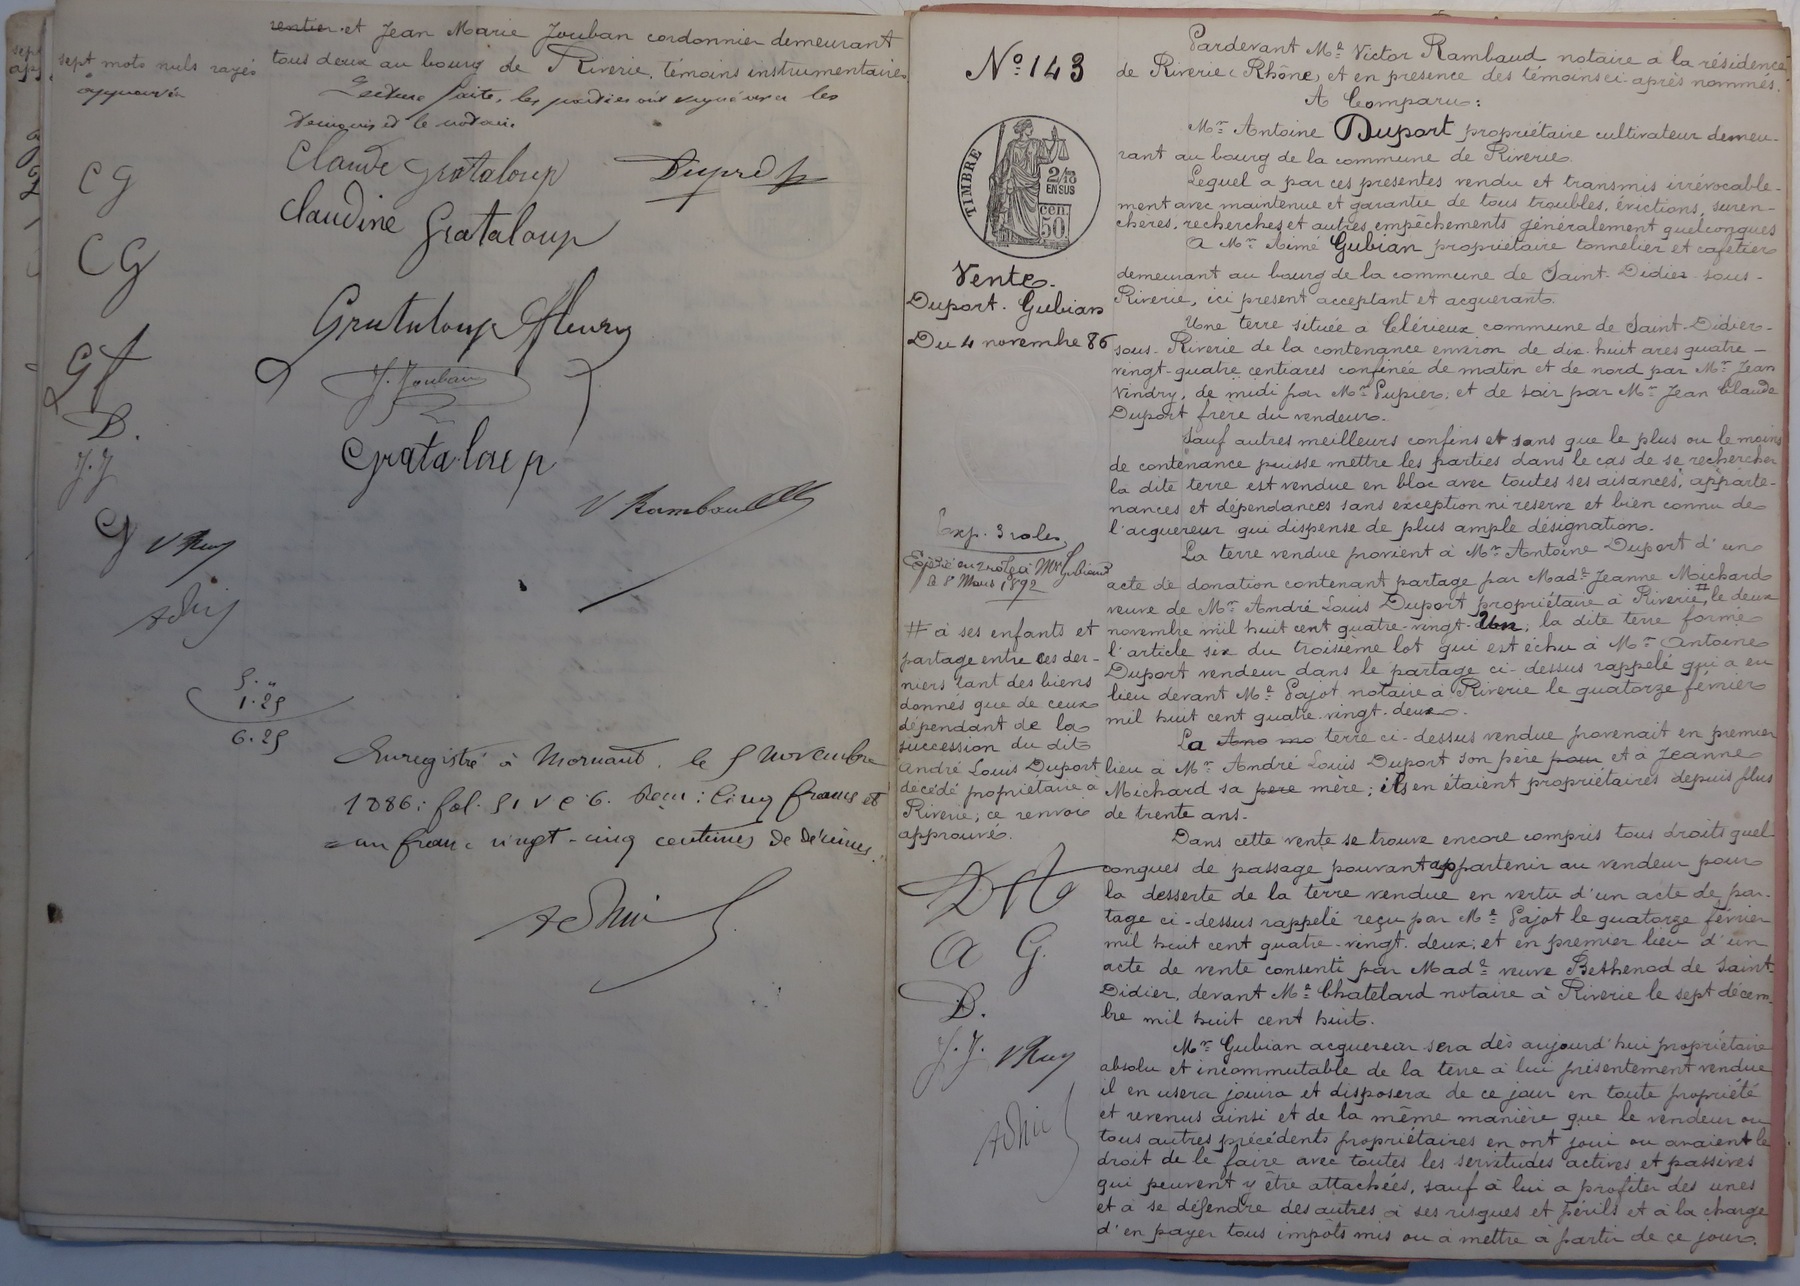 rentier et Jean Marie Jouban cordonnier demeurant
tous deux au bourg de Riverie, témoins instrumentaires
Lecture faite, les parties ont signé avec les
témoins et le notaire.
sept mots nuls rayés
approuvés
Claude Grataloup
Dupré
Claudine Grataloup
Grataloup Fleury
J. Jouban
Grataloup
V Rambaud
C G
C G
G f
D.
J. J
G
5. "
1. 25
6. 25
Enregistré à Mornant, le 5 novembre
1886: fol. 51 v c 6. Reçu: Cinq francs et
un franc vingt-cinq centimes de décimes.
No. 143
TIMBRE
2/10
EN SUS
cen.
50
Vente
Duport. Gubian
Du 4 novembre 86
Exp. 3 roles
Expédié en 2 roles à Mr Gubian
le 8 Mars 1892
# à ses enfants et
partage entre ces der-
niers tant des biens
donnés que de ceux
dépendant de la
succession du dit
André Louis Duport
décédé propriétaire à
Riverie; ce renvoi
approuvé.
A G.
D.
J. J.
Pardevant Me Victor Rambaud notaire à la résidence
de Riverie (Rhône) et en présence des témoins ci-après nommés.
A Comparu:
Mr Antoine Duport propriétaire cultivateur demeu-
rant au bourg de la commune de Riverie.
Lequel a par ces présentes vendu et transmis irrévocable-
ment avec maintenue et garantie de tous troubles, évictions, suren-
chères, recherches et autres empêchements généralement quelconques
A Mr Aimé Gubian propriétaire tonnelier et cafetier
demeurant au bourg de la commune de Saint-Didier-sous-
Riverie, ici présent acceptant et acquérant.
Une terre située à Clérieux commune de Saint-Didier-
sous-Riverie de la contenance environ de dix-huit ares quatre-
vingt-quatre centiares confinée de matin et de nord par Mr Jean
Vindry, de midi par Mr Pupier, et de soir par Mr Jean Claude
Duport frère du vendeur.
Sauf autres meilleurs confins et sans que le plus ou le moins
de contenance puisse mettre les parties dans le cas de se rechercher
la dite terre est vendue en bloc avec toutes ses aisances, apparte-
nances et dépendances sans exception ni réserve et bien connu de
l'acquéreur qui dispense de plus ample désignation.
La terre vendue provient à Mr Antoine Duport d'un
acte de donation contenant partage par Made Jeanne Michard
veuve de Mr André Louis Duport propriétaire à Riverie, # le deux
novembre mil huit cent quatre-vingt-un; la dite terre forme
l'article six du troisième lot qui est échu à Mr Antoine
Duport vendeur dans le partage ci-dessus rappelé qui a eu
lieu devant Me Pajot notaire à Riverie le quatorze février
mil huit cent quatre-vingt-deux.
La terre ci-dessus vendue provenait en premier
lieu à Mr André Louis Duport son père pour et à Jeanne
Michard sa pere mère; ils en étaient propriétaires depuis plus
de trente ans.
Dans cette vente se trouve encore compris tous droits quel-
conques de passage pouvant appartenir au vendeur pour
la desserte de la terre vendue en vertu d'un acte de par-
tage ci-dessus rappelé reçu par Me Pajot le quatorze février
mil huit cent quatre-vingt-deux; et en premier lieu d'un
acte de vente consenti par Made veuve Bethenod de Saint-
Didier, devant Me Chatelard notaire à Riverie le sept décem-
bre mil huit cent huit.
Mr Gubian acquereur sera dès aujourd'hui propriétaire
absolu et incommutable de la terre à lui présentement vendue
il en usera jouira et disposera de ce jour en toute propriété
et revenus ainsi et de la même manière que le vendeur ou
tous autres précédents propriétaires en ont joui ou avaient le
droit de le faire avec toutes les servitudes actives et passives
qui peuvent y être attachées, sauf à lui a profiter des unes
et à se défendre des autres à ses risques et périls et à la charge
d'en payer tous impôts mis ou à mettre à partir de ce jour.